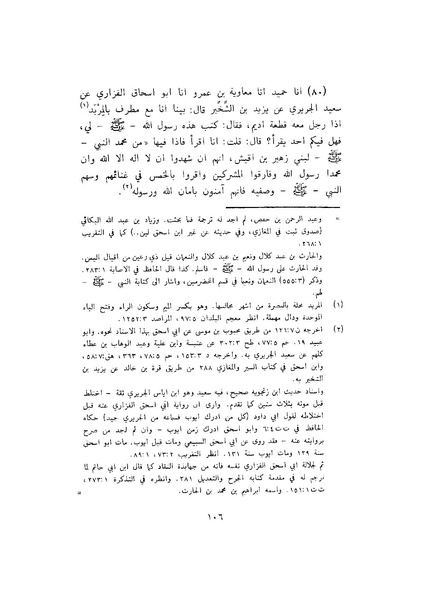 (٨٠) انا حميد انا معاوية بن عمرو انا ابو اسحاق الفزاري عن
سعيد الجريري عن يزيد بن الشِّخِّير قال: بينا انا مع مطرف بالمِرْبَد(١)
اذا رجل معه قطعة اديم، فقال: كتب هذه رسول الله – ﷺ – لي،
فهل فيكم احد يقرأ؟ قال: قلت: انا اقرأ فاذا فيها «من محمد النبي –
ﷺ – لبني زهير بن اقيش، انهم ان شهدوا ان لا اله الا الله وان
محمدا رسول الله وفارقوا المشركين واقروا بالخمس في غنائمهم وسهم
النبي – ﷺ – وصفيه فانهم آمنون بامان الله ورسوله(٢).
= وعبد الرحمن بن حفص، لم اجد له ترجمة فيما بحثت. وزياد بن عبد الله البكائي
(صدوق ثبت في المغازي، وفي حديثه عن غير ابن اسحق لين..) كما في التقريب
٢٦٨:١.
والحارث بن عبد كلال ونعيم بن عبد كلال والنعمان قيل ذي رعين من اقيال اليمن.
وفد الحارث على رسول الله – ﷺ – فاسلم. كذا قال الحافظ في الاصابة ٢٨٣:١.
وذكر (٥٥٥:٣) النعمان ونعيما في قسم المخضرمين، واشار الى كتابة النبي – ﷺ
لهم.
(١) المربد محلة بالبصرة من اشهر محالها. وهو بكسر الميم وسكون الراء وفتح الباء
الموحدة ودال مهملة. انظر معجم البلدان ٩٧:٥، المراصد ١٢٥٢:٣.
(٢) اخرجه ن١٢٦:٧ من طريق محبوب بن موسى عن ابي اسحق بهذا الاسناد نحوه. وابو
عبيد ١٩، حم ٧٧:٥، طح ٣٠٢:٣ عن عنبسة وابن علية وعبد الوهاب بن عطاء
كلهم عن سعيد الجريري به. واخرجه د ١٥٣:٣، حم ٧٨:٥، ٣٦٣، هق٥٨:٧،
وابن اسحق في كتاب السير والمغازي ٢٨٨ من طريق قرة بن خالد عن يزيد بن
الشخير به.
واسناد حديث ابن زنجويه صحيح، فيه سعيد وهو ابن اياس الجريري ثقة – اختلط
قبل موته بثلاث سنين كما تقدم. وارى ان رواية ابي اسحق الفزاري عنه قبل
اختلاطه لقول ابي داود (كل من ادرك ايوب فسماعه من الجريري جيد) حكاه
الحافظ في ت ت٦:٤ وابو اسحق ادرك زمن ايوب – وان لم اجد من صرح
بروايته عنه – فقد روى عن ابي اسحق السبيعي ومات قبل ايوب. مات ابو اسحق
سنة ١٢٩ ومات ايوب سنة ١٣١. انظر التقريب ٧٣:٢، ٨٩:١.
ثم لجلالة ابي اسحق الفزاري نفسه فانه من جهابذة النقاد كما قال ابن ابي حاتم لما
ترجم له في مقدمة كتابه الجرح والتعديل ٢٨١. وانظره في التذكرة ٢٧٣:١،
ت ت١٥١:١. واسمه ابراهيم بن محمد بن الحارث. =
١٠٦